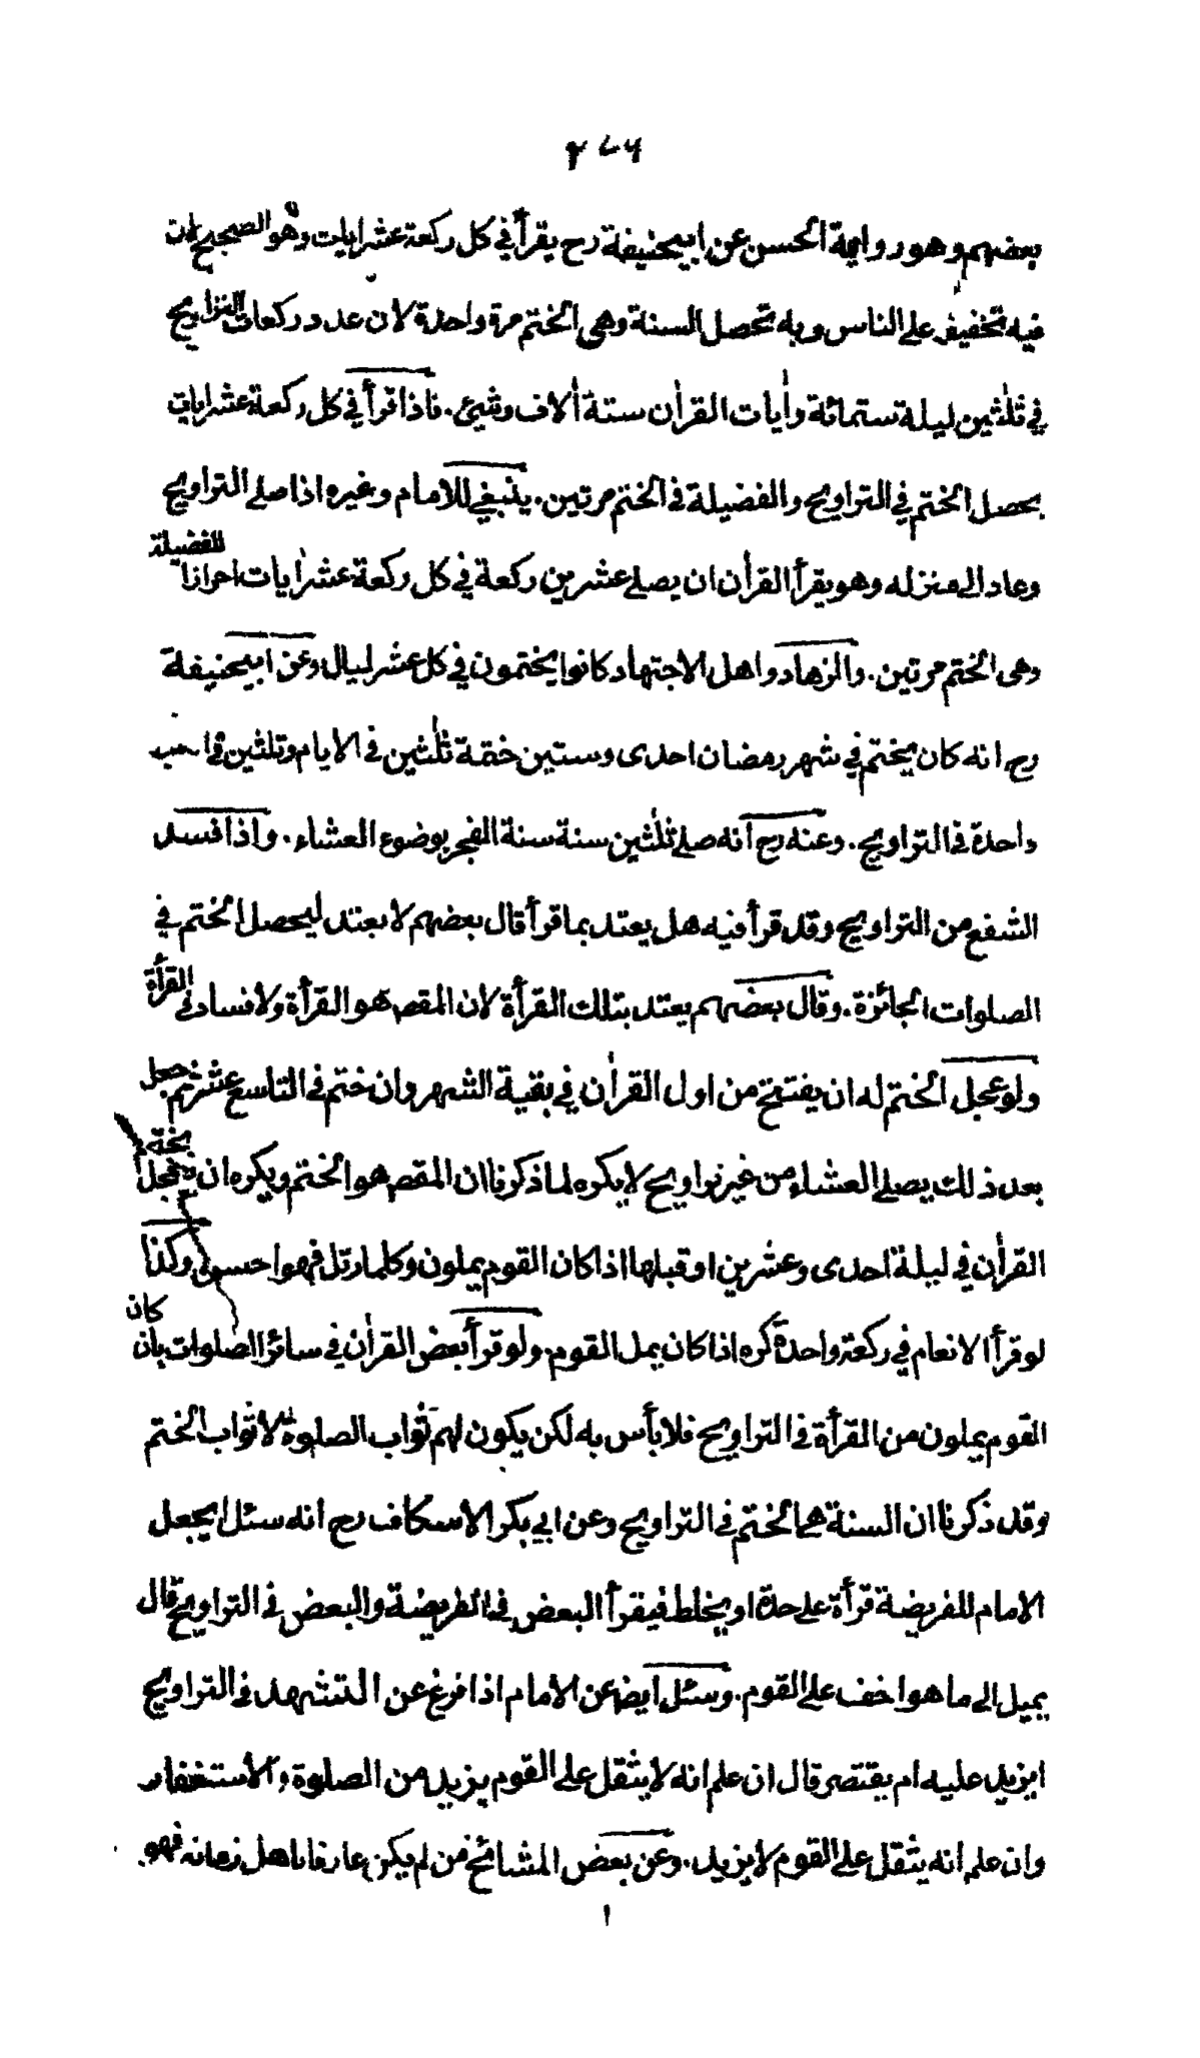 ٢٧٦
بعضهم وهو رواية الحسن عن ابيحنيفة رح يقرأ في كل ركعة عشر ايات وهو الصحيح لان
فيه تخفيفا على الناس وبه تحصل السنة وهى الختم مرة واحدة لان عدد ركعات التراويح
في ثلٰثين ليلة ستمائة واٰيات القراٰن ستة اٰلاف وشيئ. فاذا قرأ في كل ركعة عشر ايات
يحصل الختم في التراويح والفضيلة في الختم مرتين. ينبغي للامام وغيره اذا صلى التراويح
وعاد الى منزله وهو يقرأ القراٰن ان يصلى عشرين ركعة في كل ركعة عشر اٰيات احرازا للفضيلة
وهى الختم مرتين. والزهاد واهل الاجتهاد كانوا يختمون في كل عشر ليال وعن ابيحنيفة
رح انه كان يختم في شهر رمضان احدى وستين ختمة ثلٰثين في الايام وثلثين في
واحدة في التراويح. وعنه رح انه صلى ثلٰثين سنة سنة الفجر بوضوء العشاء. واذا فسد
الشفع من التراويح وقد قرأ فيه هل يعتد بما قرأ قال بعضهم لا يعتد ليحصل الختم في
الصلوات الجائزة. وقال بعضهم يعتد بتلك القرأة لان المقص هو القرأة ولا فساد في القرأة
ولو عجل الختم له ان يفتتح من اول القراٰن في بقية الشهر وان ختم في التاسع عشر ثم جعل
بعد ذلك يصلى العشاء من غير تراويح لا يكره لما ذكرنا ان المقص هو الختم ويكره ان يعجل بختم
القراٰن في ليلة احدى وعشرين او قبلها اذا كان القوم يملون وكلما رتل فهو احسن وكذا
لو قرأ الانعام في ركعة واحدة كره اذا كان يمل القوم. ولو قرأ بعض القراٰن في سائر الصلوات بان كان
القوم يملون من القرأة في التراويح فلا بأس به لكن يكون لهم ثواب الصلوة لا ثواب الختم
وقد ذكرنا ان السنة هي الختم في التراويح وعن ابي بكر الاسكاف رح انه سئل ايجعل
الامام للفريضة قرأة على حدة او يخلط فيقرأ البعض في الفريضة والبعض في التراويح قال
يميل الى ما هو اخف على القوم. وسئل ايضا عن الامام اذا فرغ عن التشهد في التراويح
ايزيد عليه ام يقتصر قال ان علم انه لا يثقل على القوم يزيد من الصلوة والاستغفار
وان علم انه يثقل على القوم لا يزيد. وعن بعض المشائخ من لم يكن عارفا باهل زمانه فهو